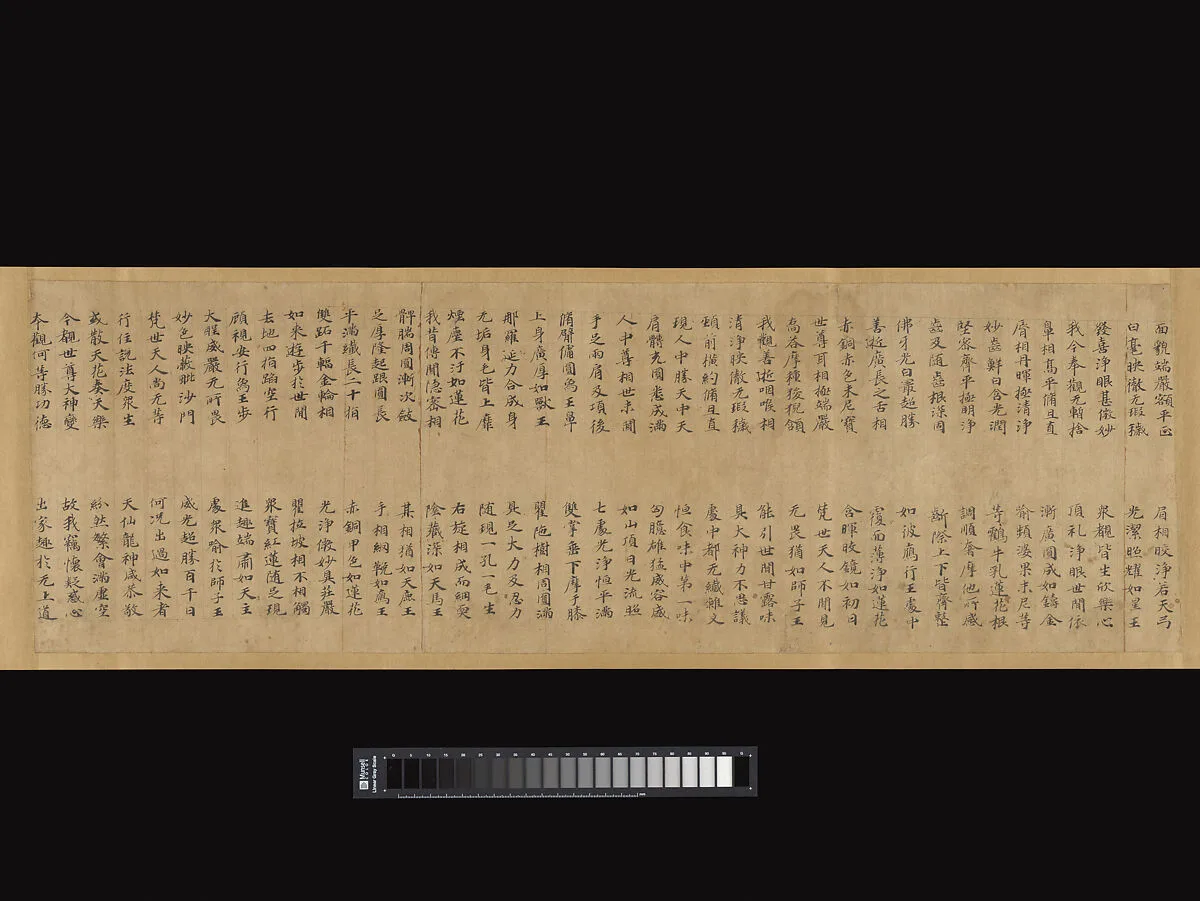 面貌端嚴額平正 眉相皎淨若天弓
白毫映徹无瑕穢 光潔照耀如星王
發喜淨眼甚微妙 衆覩皆生欣樂心
我今奉觀无暫捨 頂礼淨眼世間依
鼻相高平脩且直 漸廣圓成如鑄金
脣相丹暉極清淨 喻頻婆果末尼等
妙齒鮮白含光潤 等鸖牛乳蓮花根
堅密齊平極明淨 調順奢摩他所感
齒及随齒根深固 齗際上下皆齊整
佛牙光白最超勝 如彼鴈行王處中
善逝廣長之舌相 覆面薄淨如蓮花
赤銅赤色末尼寶 含暉映鏡如初日
世尊耳相極端嚴 梵世天人不聞見
喬荅摩種狻猊頷 无畏猶如師子王
我觀善逝咽喉相 能引世間甘露味
清淨映徹无瑕穢 具大神力不思議
頸前橫約脩且直 處中都无纖雜文
現人中勝天中天 恒食味中第一味
肩髆充圓悉成滿 匈臆雄猛威容盛
人中尊相世未聞 如山頂日光流照
手足兩肩及項後 七處光淨恒平滿
脩臂傭圓爲王鼻 雙掌垂下摩于膝
上身廣厚如獸王 瞿陁樹相周圓滿
那羅延力合成身 具足大力及忍力
无垢身毛皆上靡 随現一孔一毛生
煙塵不汙如蓮花 右旋相成而細耎
我昔傳聞隱密相 陰藏深如天馬王
髀腨周圓漸次斂 其相猶如天鹿王
足厚隆起跟圓長 手相網鞔如鴈王
平滿纖長二十指 赤銅甲色如蓮花
雙跖千輻金輪相 光淨微妙具莊嚴
如來遊步於世間 瞿拉坡相不相觸
去地四指蹈空行 衆寶紅蓮随足現
顧視安行爲王步 進趣端肅如天主
大威嚴无所畏 處衆喻於師子王
妙色映蔽毗沙門 威光超勝百千日
梵世天人尚无等 何況出過如來者
行住說法度衆生 天仙龍神咸恭敬
或散天花奏天樂 紛然繁會滿虛空
今覩世尊大神變 故我竊懷疑惑心
奉觀何等勝功德 出家趣於无上道